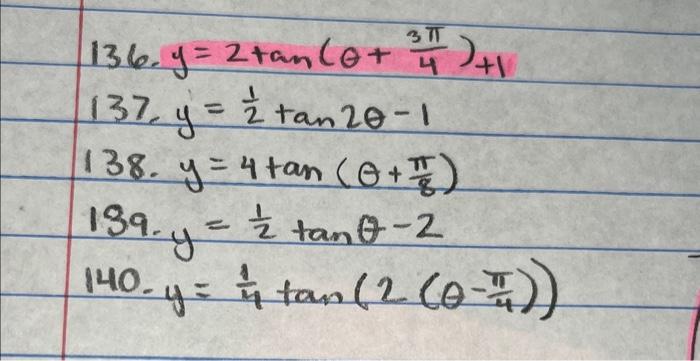 136. y = 2tan(θ + 3π/4) +1
137. y = 1/2 tan2θ - 1
138. y = 4tan (θ + π/8)
139. y = 1/2 tanθ - 2
140. y = 1/4 tan(2 (θ - π/4))